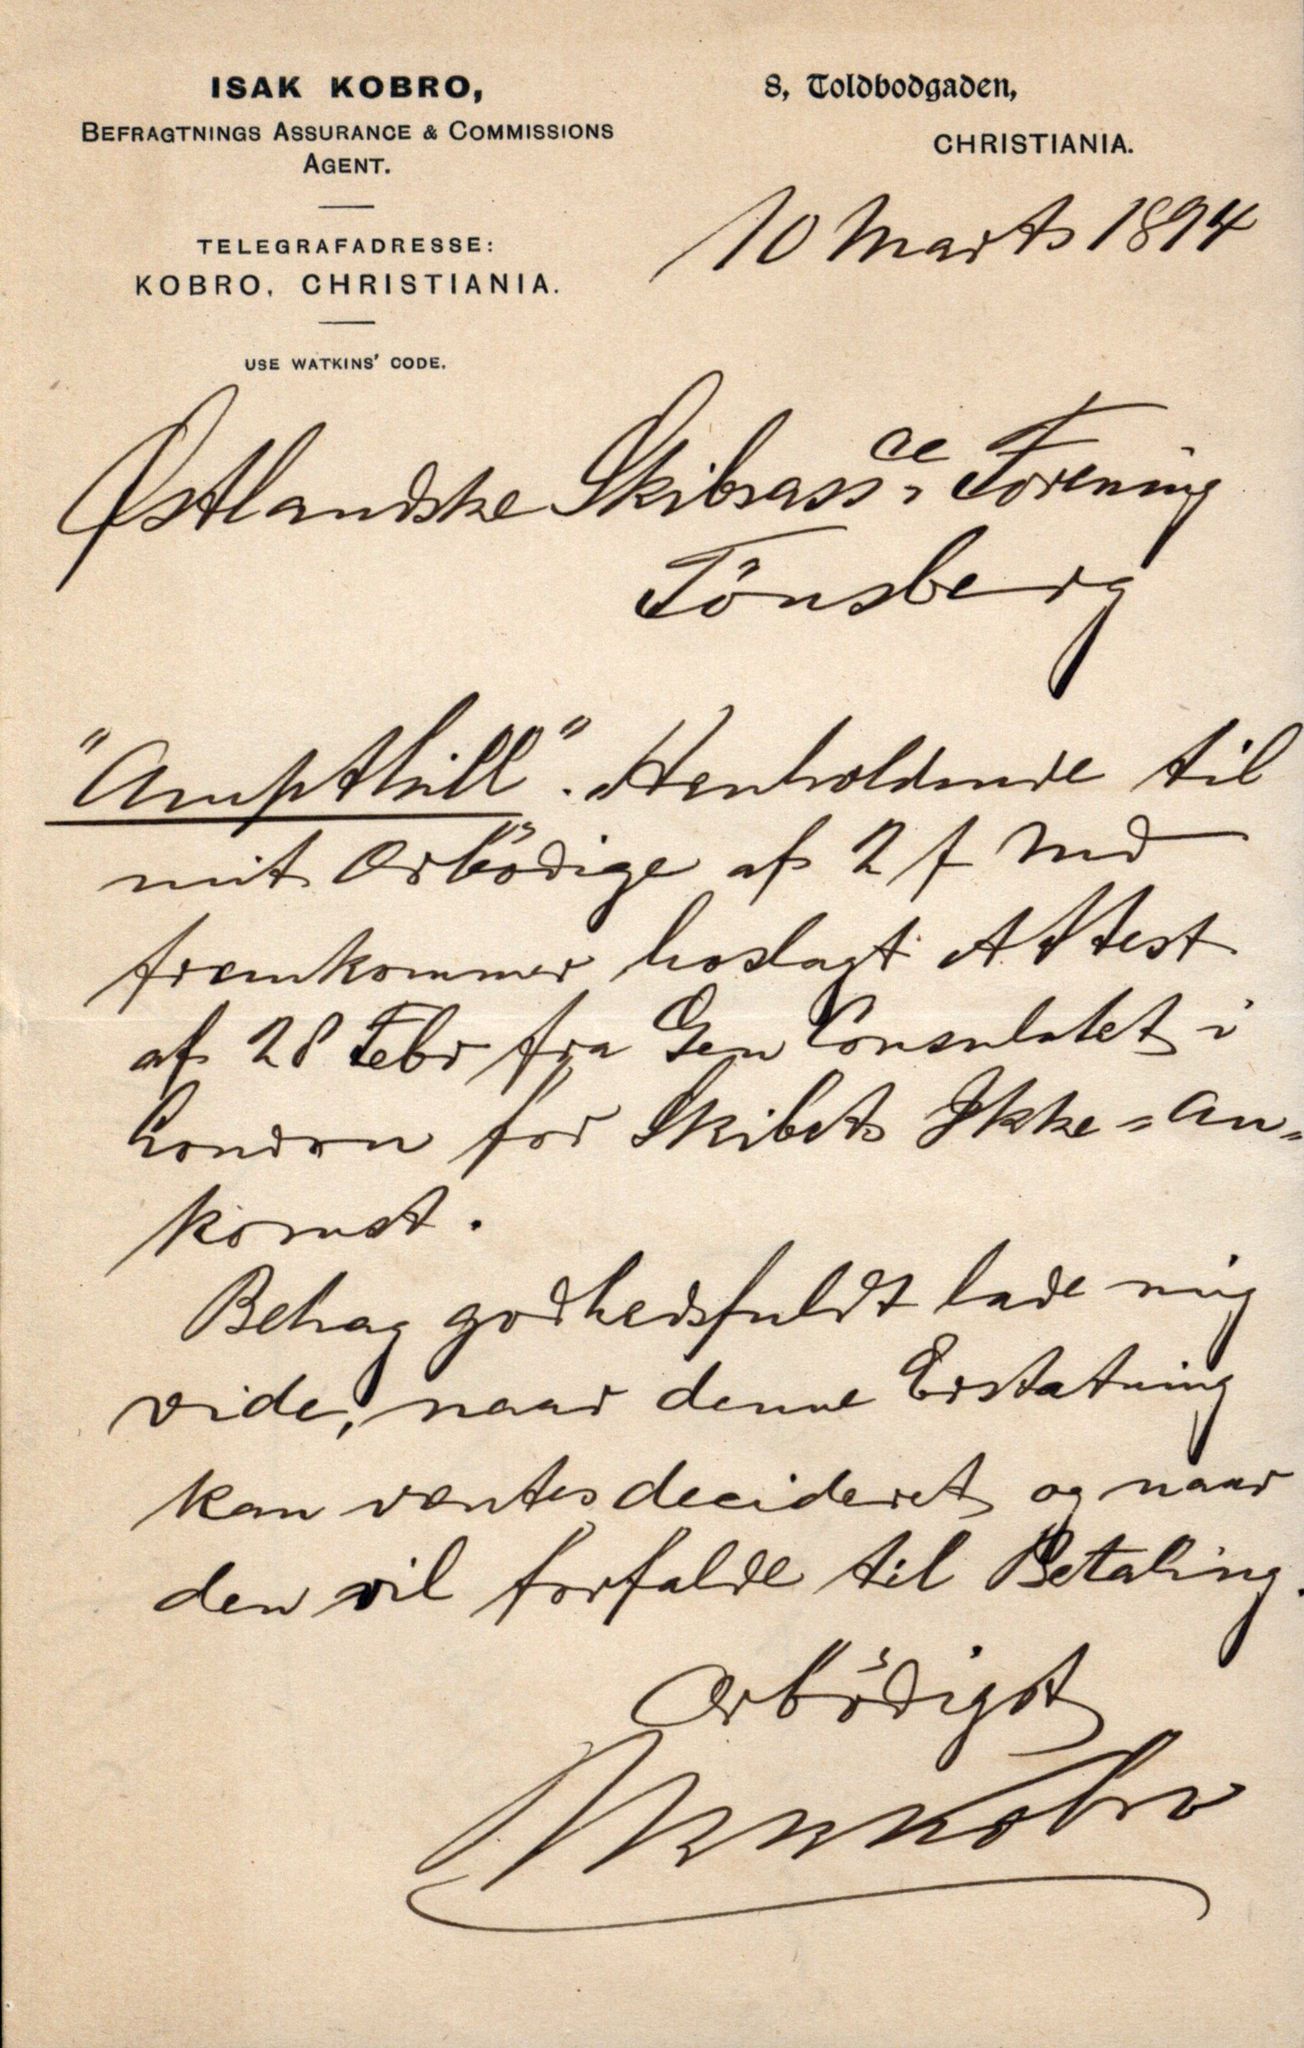 ISAK KOBRO,
BEFRAGTNINGS ASSURANCE & COMMISSIONS
AGENT.
TELEGRAFADRESSE:
KOBRO, CHRISTIANIA.
USE WATKINS' CODE.
8, Toldbodgaden,
CHRISTIANIA.
10 Marts 1894
Østlandske Skibsassce Forening
Tönsberg
"Ampthill". Henholdende til
mit Ærbödige af 2 f Md
fremkommer hoslagt Attest
af 28 Febr fra Gen Consulatet i
London for Skibets Ikke=An=
komst.
Behag godhedsfuldt lade mig
vide, naar denne Erstatning
kan ventes decideret og naar
den vil forfalde til Betaling.
Ærbödigst
Isak Kobro